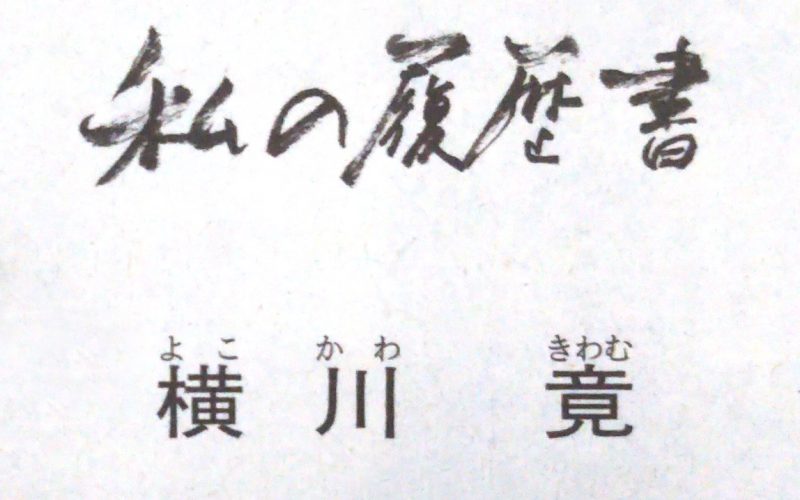 私の履歴書
よこ かわ きわむ
横川 竟